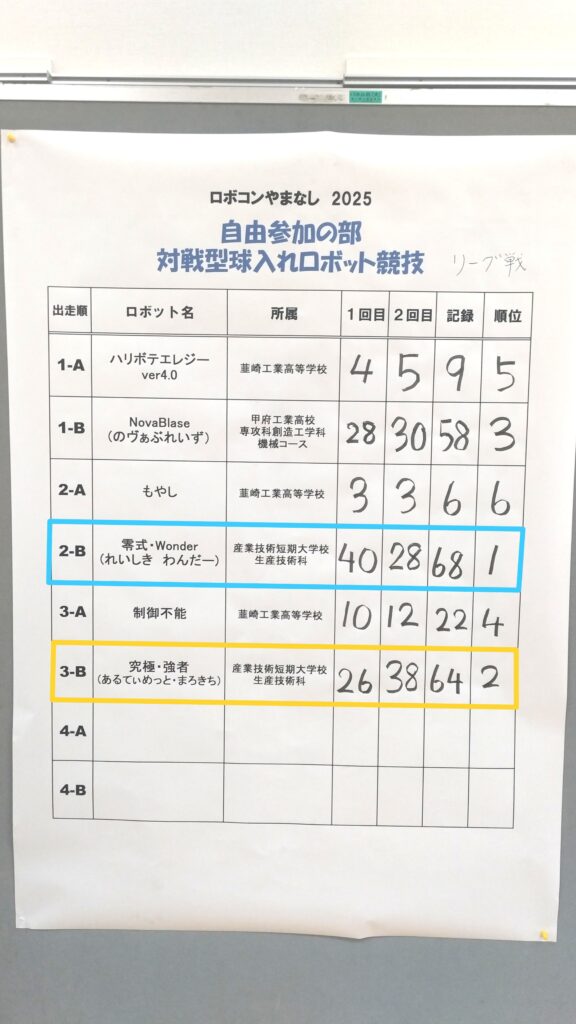 ロボコンやまなし 2025
自由参加の部
対戦型球入れロボット競技 リーグ戦
出走順 ロボット名 所属 1回目 2回目 記録 順位
1-A ハリボテエレジー ver4.0 韮崎工業高等学校 4 5 9 5
1-B NovaBlase (のヴぁぶれいず) 甲府工業高校 専攻科創造工学科 機械コース 28 30 58 3
2-A もやし 韮崎工業高等学校 3 3 6 6
2-B 零式・Wonder (れいしき わんだー) 産業技術短期大学校 生産技術科 40 28 68 1
3-A 制御不能 韮崎工業高等学校 10 12 22 4
3-B 究極・強者 (あるてぃめっと・まろきち) 産業技術短期大学校 生産技術科 26 38 64 2
4-A
4-B